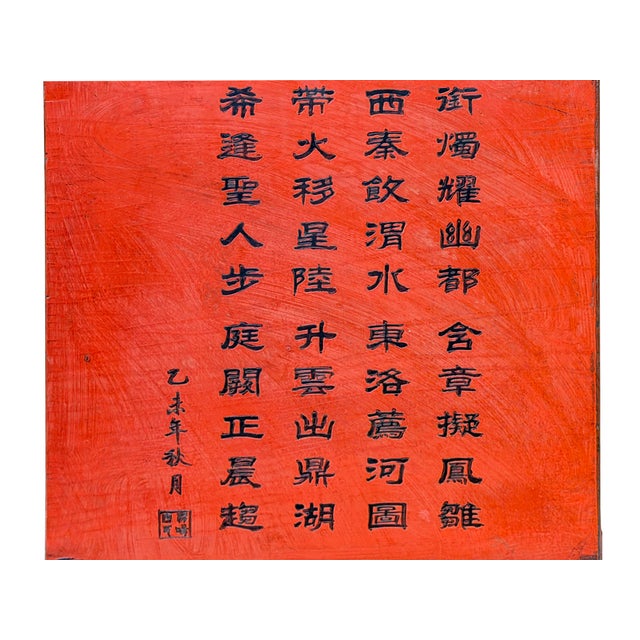 銜燭耀幽都含章擬鳳雛
西秦飲渭水東洛薦河圖
帶火移星陸升雲出鼎湖
希逢聖人步庭闕正晨趨
乙未年秋月